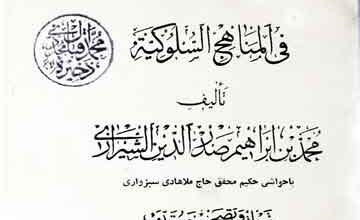 في المناهج السلوكية
تأليف
محمد بن إبراهيم صدر الدين الشيرازي
باحواشی حکیم محقق حاج ملاهادی سبزواری